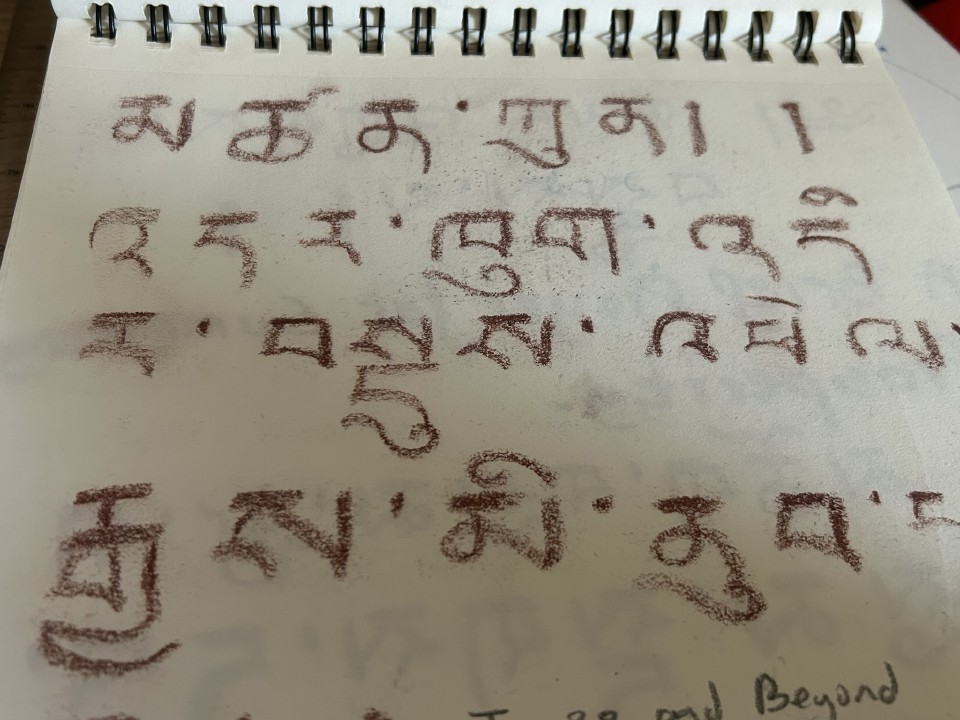 མཚན་ཀུན། །
འདར་ཁུག་འདི
ར་བསྡུས་འཕེལ་
རྒྱས་མི་ནུབ་
and Beyond